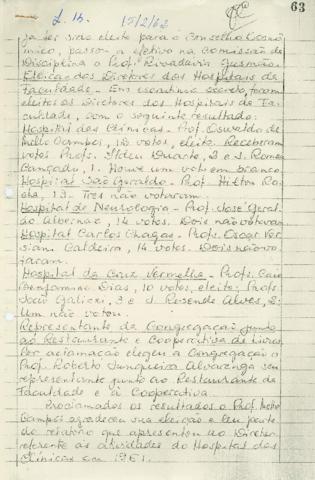 L. 16. 15/2/62 63
ja ter sido eleito para o Conselho Econô-
mico, passou a efetivo na Comissão de
Disciplina o Prof. Rivadavia Gusmão.
Eleição dos Diretores dos Hospitais da
Faculdade - Em escrutínio secreto, foram
eleitos os Diretores dos Hospitais da Fa-
culdade, com o seguinte resultado:
Hospital das Clínicas - Prof. Oswaldo de
Mello Campos, votos, eleito. Receberam
votos Profs. Ilden Duarte, 2 e J. Romeu
Cançado, 1. Houve um voto em branco.
Hospital São Geraldo - Prof. Hilton Ro-
cha, 13. Três não votaram.
Hospital de Neurologia - Prof. José Geral-
do Albernaz, 14 votos. Dois não votaram
Hospital Carlos Chagas - Profs. Oscar Ver-
siani Caldeira, 14 votos. Dois não vo-
taram.
Hospital da Cruz Vermelha - Profs. Caio
Benjamin Dias, 10 votos, eleito; Profs.
João Galizzi, 3 e J. Resende Alves, 2.
Um não votou.
Representante da Congregação junto
ao Restaurante e Cooperativa de Livros.
Por aclamação elegeu a Congregação o
Prof. Roberto Junqueira Alvarenga seu
representante junto ao Restaurante da
Faculdade e à Cooperativa.
Proclamados os resultados o Prof. Mello
Campos agradeceu sua eleição e leu parte
do relatório que apresentou ao Diretor
referente às atividades do Hospital das
Clínicas em 1961.